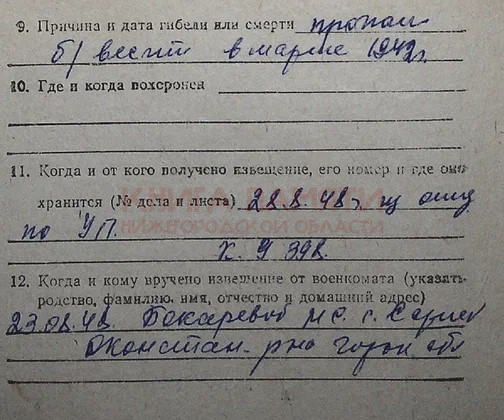 9. Причина и дата гибели или смерти пропал
б/ вести в марте 1942г.
10. Где и когда похоронен
11. Когда и от кого получено извещение, его номер и где оно
КНИГА ПАМЯТИ
хранится (№ дела и листа) 28.8.48г. из
НИЖЕГОРОДСКОЙ ОБЛАСТИ
по УП.
12. Когда и кому вручено извещение от военкомата (указать
родство, фамилию, имя, отчество и домашний адрес)
23.08.48. Бокаревой с.
Д констан. р-на Горьк обл